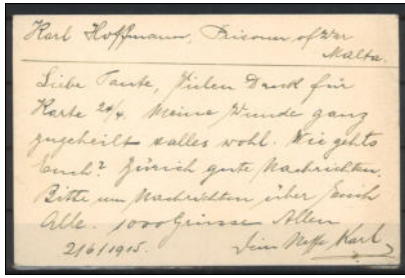 Karl Hoffmann, Prisoner of War
Malta.
Liebe Tante, Vielen Dank für
Karte 24/4. Meine Wunde ganz
zugeheilt & alles wohl. Wie gehts
Euch? Zürich gute Nachrichten.
Bitte um Nachrichten über Euch
Alle. 1000 Grüsse Allen
21/6/1915. Dein Neffe Karl